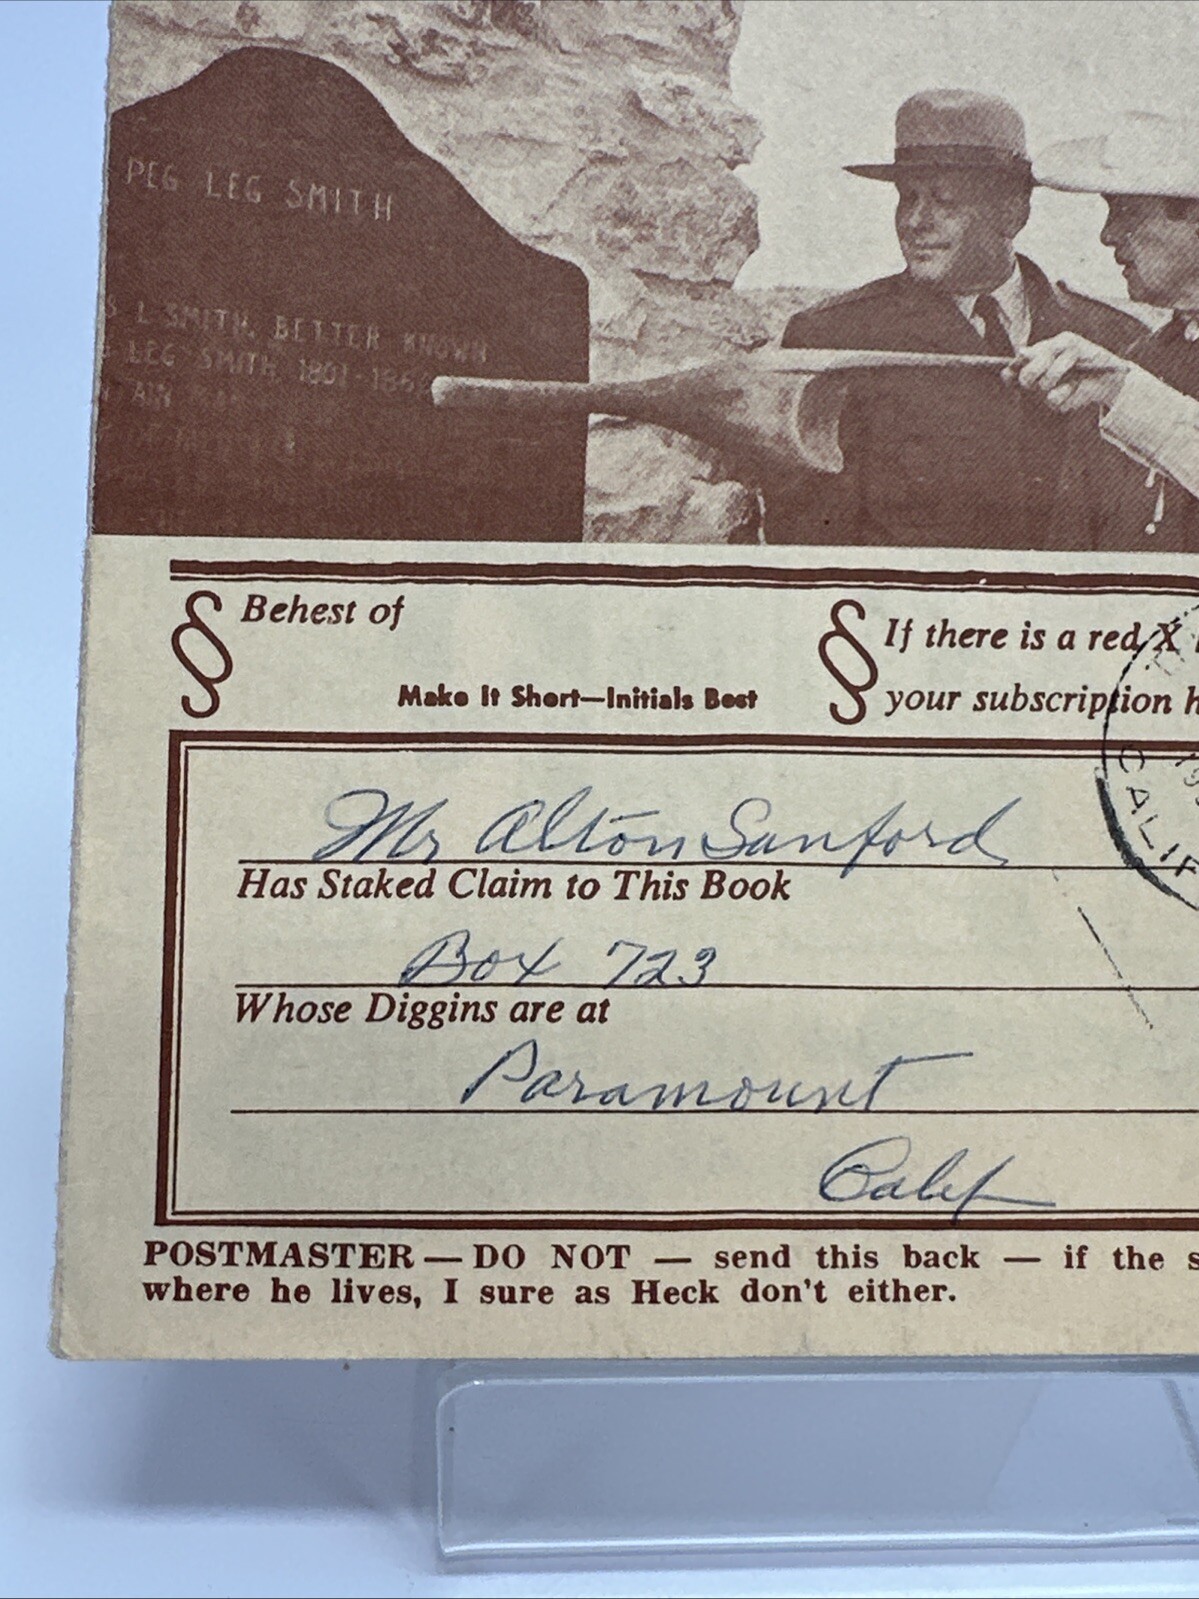 PEG LEG SMITH
S L. SMITH, BETTER KNOWN
LEG SMITH, 1801-186
Behest of
Make It Short—Initials Best
If there is a red X
your subscription h
CALIF
Mr Alton Sanford
Has Staked Claim to This Book
Box 723
Whose Diggins are at
Paramount
Calif
POSTMASTER — DO NOT — send this back — if the s
where he lives, I sure as Heck don't either.